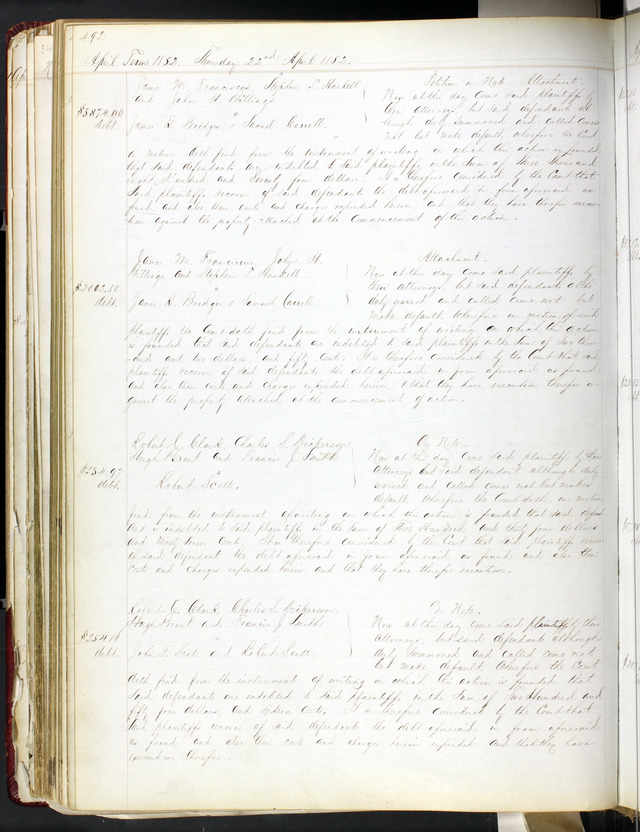 492
April Term 1852. Thursday 22nd April 1852.
James M. Franciscus, Stephen S. Haskell
and John H. Billings
vs
James R. Bridges & Samuel Correll.
$3874.00
debt.
Petition on Note. Attachment.
Now at this day come said plaintiffs by
their attorneys, but said defendants al
though duly summoned and called come
not but make default, wherefore the Court
on motion doth find from the instrument of writing on which this action is founded
that said defendants are indebted to said plaintiffs in the sum of Three thousand
Eight Hundred and Seventy four dollars. It is therefore considered by the Court that
said plaintiffs recover of said defendants the debt aforesaid in form aforesaid as
found, and also their costs and charges expended herein, and that they have therefor execu-
tion against the property attached at the commencement of this action.
James M. Franciscus, John H.
Billings and Stephen S. Haskell
vs
James R. Bridges & Samuel Correll.
$2002.50
debt.
Attachment.
Now at this day come said plaintiffs by
their attorneys, but said defendants altho
duly warned and called come not but
make default, wherefore on motion of said
plaintiffs the Court doth find from the instrument of writing on which this action
is founded that said defendants are indebted to said plaintiffs in the sum of Two thou-
sand and two dollars, and fifty cents. It is therefore considered by the Court that said
plaintiffs recover of said defendants the debt aforesaid in form aforesaid as found
and also their costs and charges expended herein, & that they have execution therefor a-
gainst the property attached at the commencement of action.
Robert C. Clark, Charles S. Dickerson,
Hugh Brent and Francis J. Smith
vs
Robert Scott.
$334.97
debt.
On Note.
Now at this day come said plaintiffs by their
Attorneys but said defendant although duly
warned and called comes not but makes
default wherefore the Court doth on motion
find from the instrument of writing on which the action is founded that said defend
ant is indebted to said plaintiffs in the sum of Three Hundred and thirty four dollars
and ninety seven cents. It is therefore considered by the Court that said plaintiffs recover
of said defendant the debt aforesaid in form aforesaid as found and also their
costs and charges expended herein, and that they have therefor execution.
Robert C. Clark, Charles S. Dickerson,
Hugh Brent and Francis J. Smith
vs
John S. Scott and Robert Scott.
$254.16
debt.
On Note.
Now at this day come said plaintiffs by their
Attorneys, but said defendants although
duly summoned and called come not
but make default wherefore the Court
doth find from the instrument of writing on which the action is founded that
said defendants are indebted to said plaintiffs in the sum of Two Hundred and
fifty four dollars, and sixteen cents. It is therefore considered by the Court that
said plaintiffs recover of said defendants the debt aforesaid in form aforesaid
as found, and also their costs and charges herein expended and that they have
execution therefor.